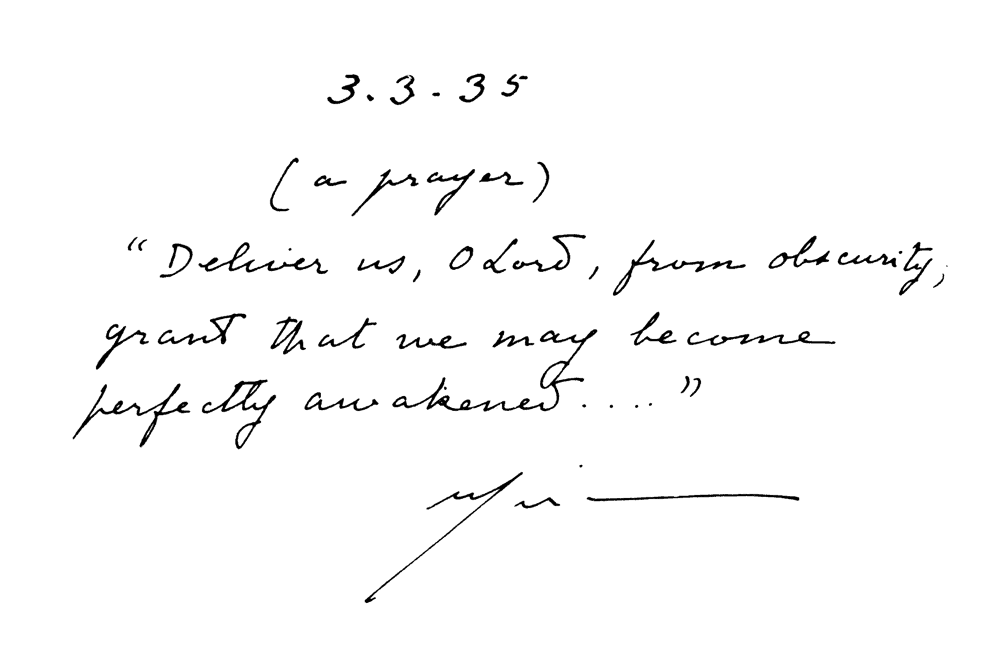 3.3.35
(a prayer)
"Deliver us, O Lord, from obscurity,
grant that we may become
perfectly awakened...."